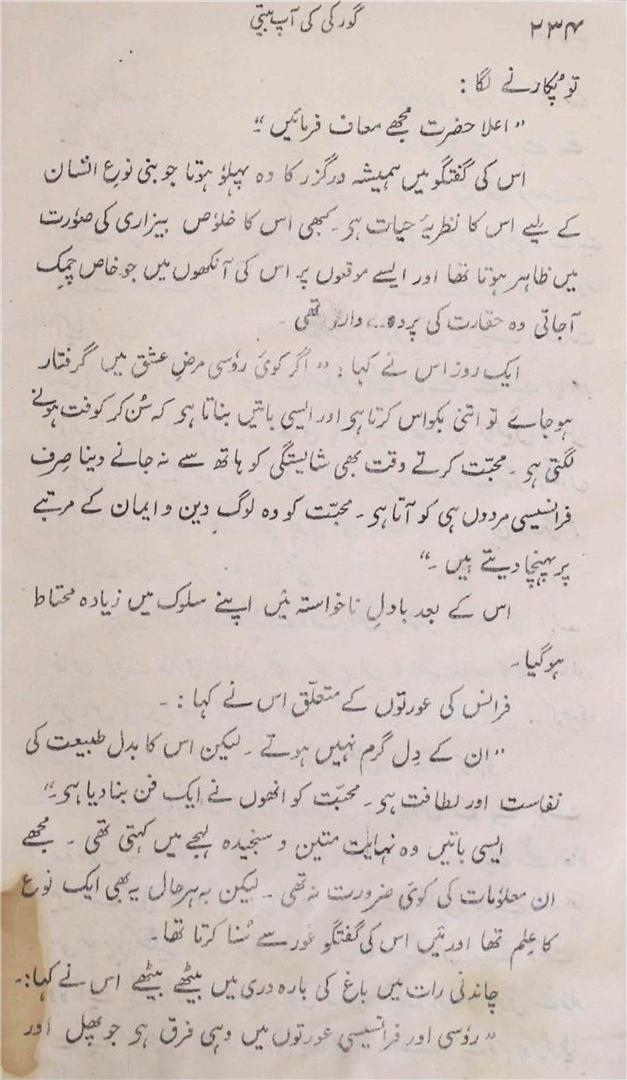 ۲۳۴ گورکی کی آپ بیتی
تو پُکارنے لگا :
”اعلا حضرت مجھے معاف فرمائیں“۔
اس کی گفتگو میں ہمیشہ درگزر کا وہ پہلؤ ہوتا جو بنی نوعِ انسان
کے لیے اس کا نظریۂ حیات ہی۔ کبھی اس کا خلوٗص بیزاری کی صوٗرت
میں ظاہر ہوتا تھا اور ایسے موقعوں پر اس کی آنکھوں میں جو خاص چمک
آجاتی وہ حقارت کی پردہ دار تھی ۔
ایک روز اس نے کہا : ” اگر کوئ روٗسی مرضِ عشق میں گرفتار
ہوجاے تو اتنی بکواس کرتا ہی اور ایسی باتیں بناتا ہی کہ سُن کر کوفت ہونے
لگتی ہی ۔ محبّت کرتے وقت بھی شایستگی کو ہاتھ سے نہ جانے دینا صِرف
فرانسیسی مردوں ہی کو آتا ہی ۔ محبّت کو وہ لوگ دین و ایمان کے مرتبے
پر پہنچا دیتے ہیں ۔“
اس کے بعد بادلِ ناخواستہ مَیں اپنے سلوک میں زیادہ محتاط
ہوگیا ۔
فرانس کی عورتوں کے متعلّق اس نے کہا : ۔
”ان کے دِل گرم نہیں ہوتے ۔ لیکن اس کا بدل طبیعت کی
نفاست اور لطافت ہی ۔ محبّت کو انھوں نے ایک فن بنا دیا ہی۔“
ایسی باتیں وہ نہایت متین و سنجیدہ لہجے میں کہتی تھی ۔ مجھے
ان معلوٗمات کی کوئ ضرورت نہ تھی ۔ لیکن بہ ہر حال یہ بھی ایک نوع
کا عِلم تھا اور مَیں اس کی گفتگو غور سے سُنا کرتا تھا ۔
چاندنی رات میں باغ کی بارہ دری میں بیٹھے بیٹھے اس نے کہا:۔
”روٗسی اور فرانسیسی عورتوں میں وہی فرق ہی جو پھل اور